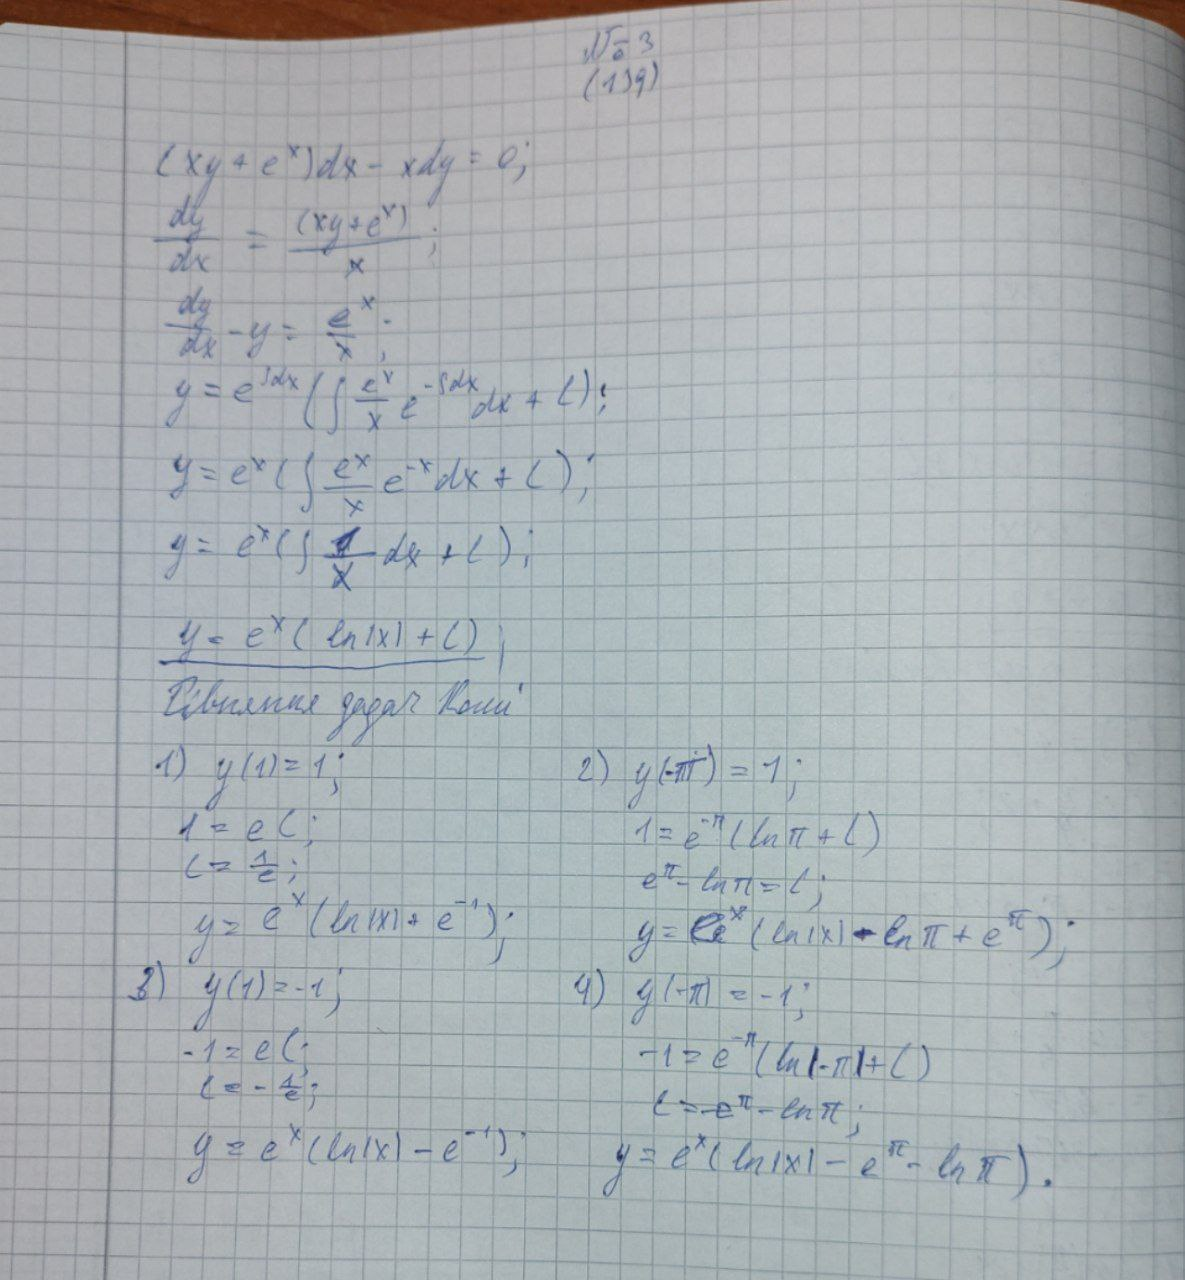 №3
(139)
(xy + eˣ)dx - xdy = 0;
dy/dx = (xy+eˣ)/x;
dy/dx - y = eˣ/x;
y = e^∫dx (∫ eˣ/x e^-∫dx dx + C);
y = eˣ (∫ eˣ/x e⁻ˣ dx + C);
y = eˣ (∫ 1/x dx + C);
y = eˣ ( ln|x| + C);
задач Коші
1) y(1) = 1;
1 = e C;
C = 1/e;
y = eˣ (ln|x| + e⁻¹);
2) y(-π) = 1;
1 = e^-π (ln π + C)
e^π - ln π = C;
y = eˣ (ln|x| - ln π + e^π);
3) y(1) = -1;
-1 = e C;
C = - 1/e;
y = eˣ (ln|x| - e⁻¹);
4) y(-π) = -1;
-1 = e^-π (ln|-π| + C)
C = -e^π - ln π;
y = eˣ (ln|x| - e^π - ln π).